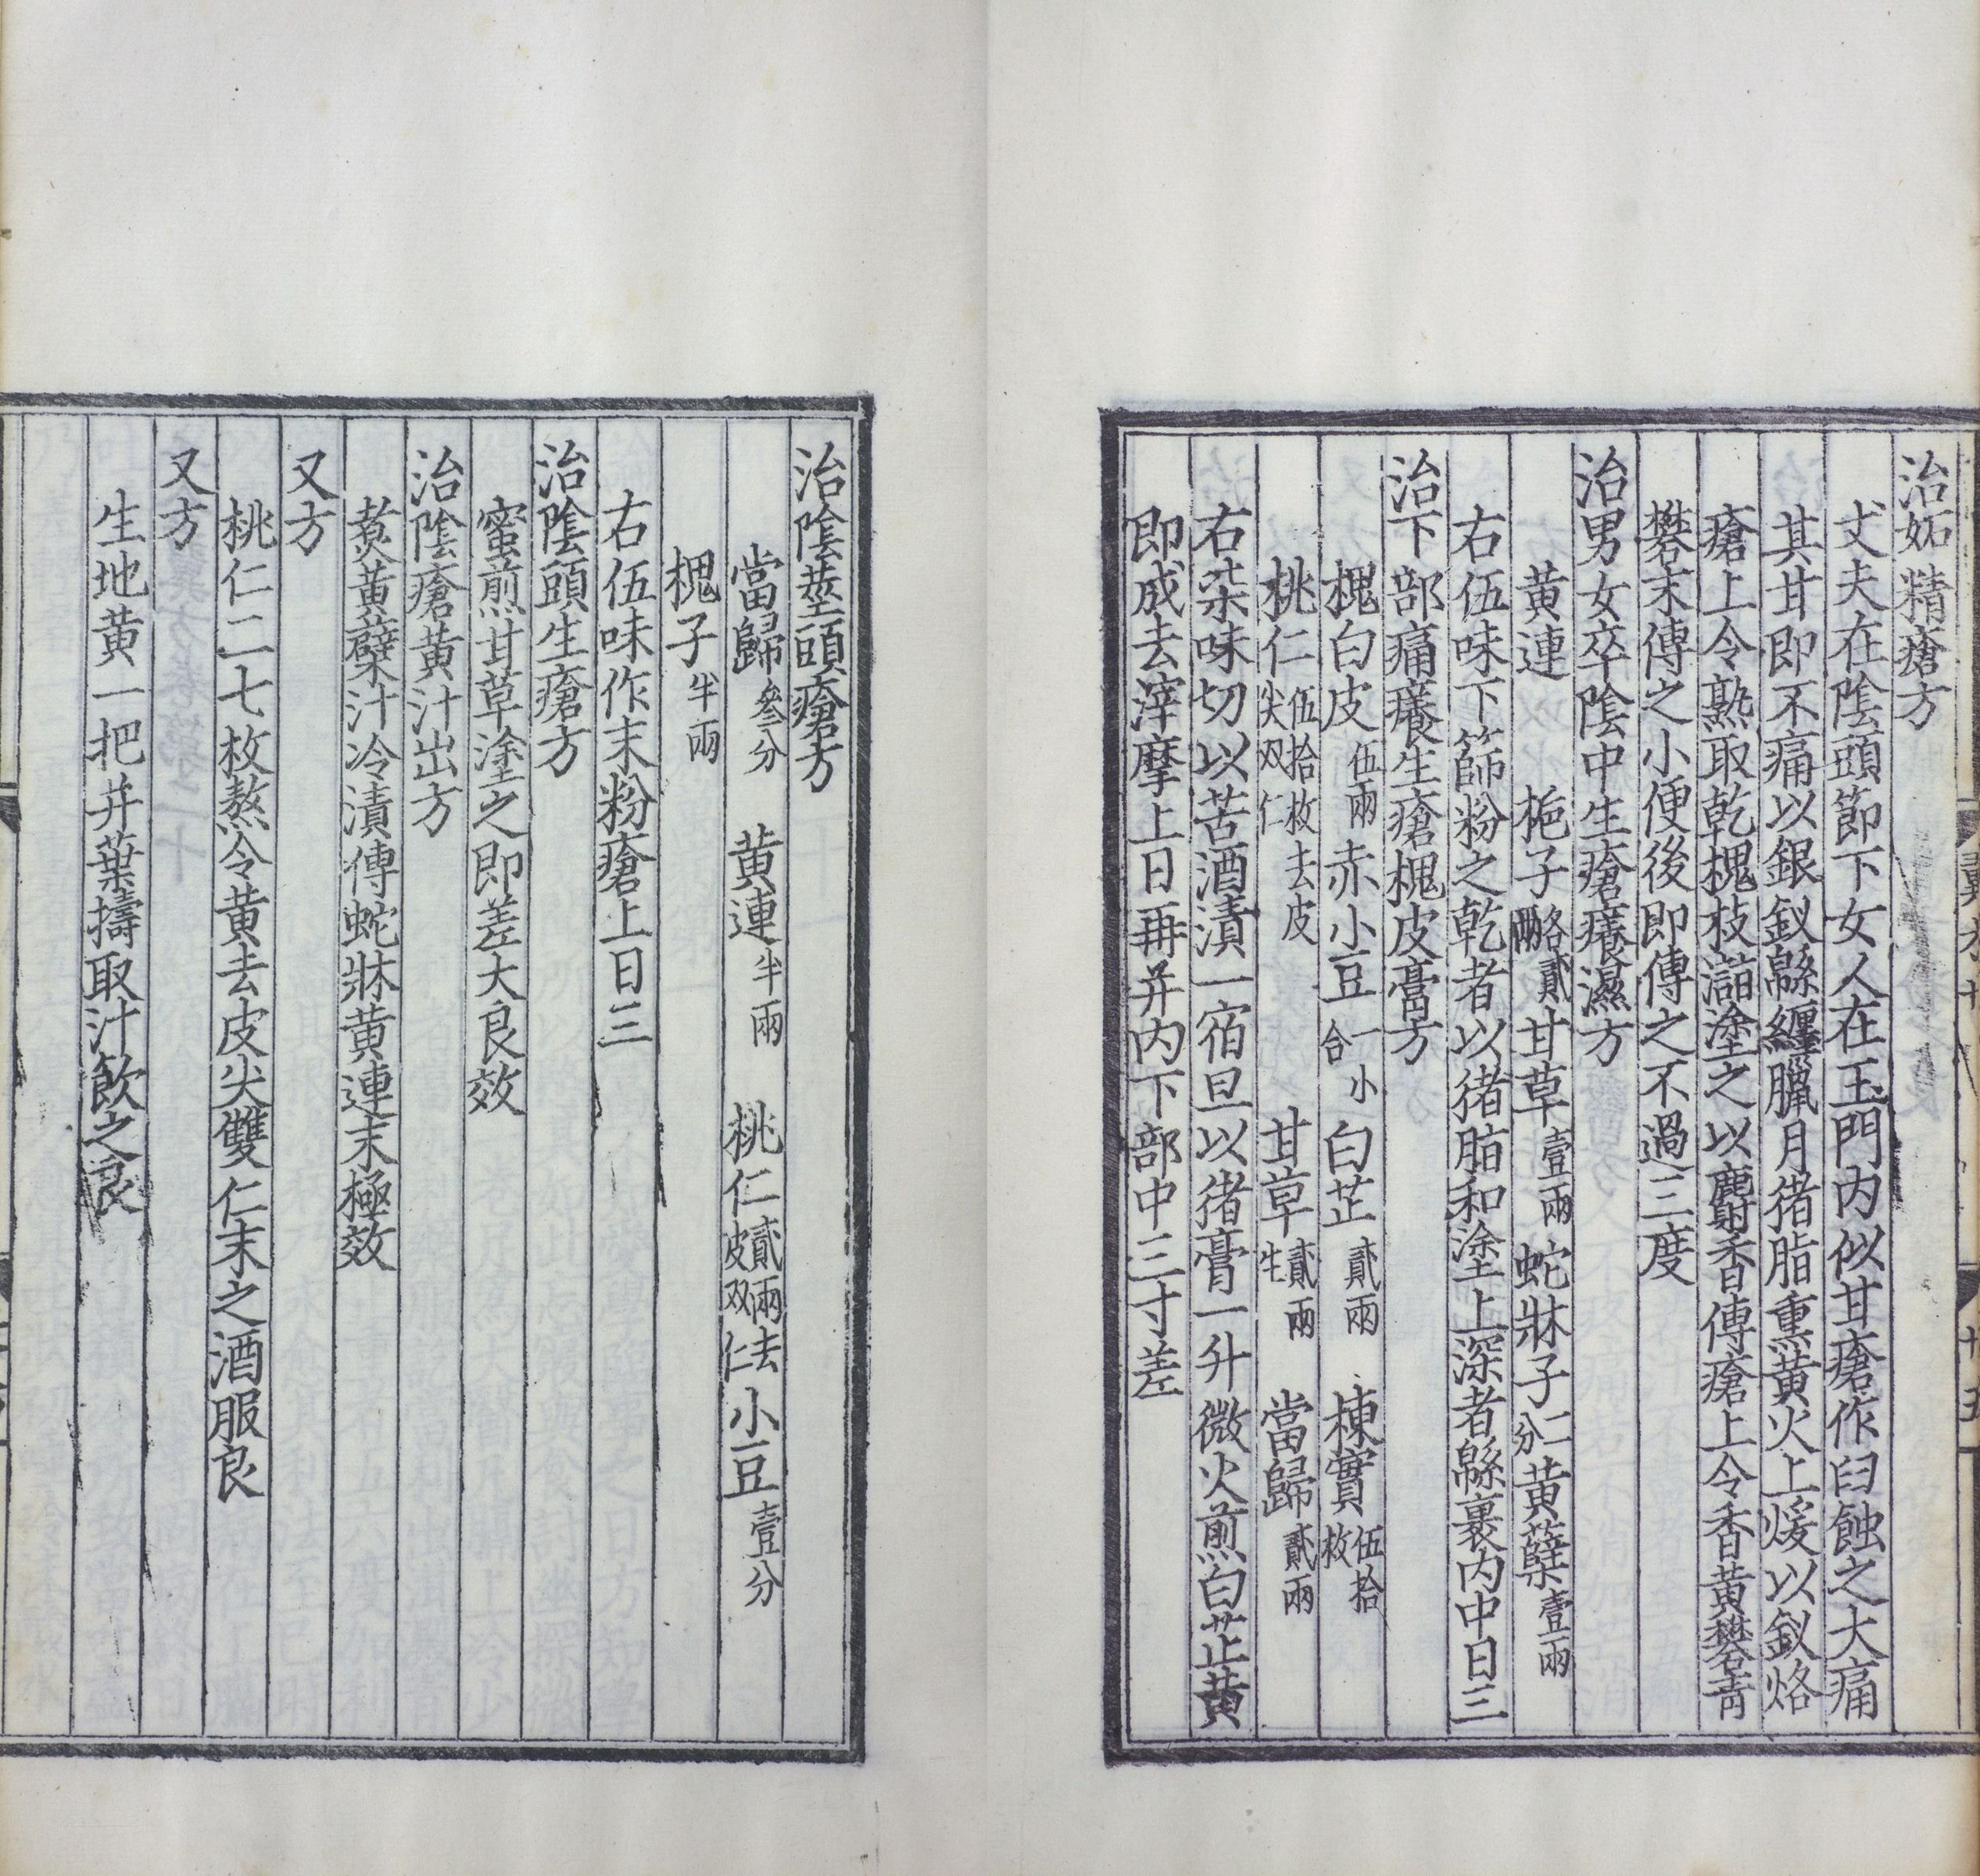 治妬精瘡方
丈夫在陰頭節下女人在玉門内似甘瘡作臼蝕之大痛
其甘即不痛以銀釵緜纏臘月猪脂熏黄火上煖以釵烙
瘡上令熟取乾槐枝㵖塗之以麝香傅瘡上令香黄礬青
礬末傅之小便後即傅之不過三度
治男女卒陰中生瘡癢濕方
黄連 梔子各貳兩 甘草壹兩 蛇牀子仁分 黄蘗壹兩
右伍味下篩粉之乾者以猪脂和塗上深者緜裹内中日三
治下部痛癢生瘡槐皮膏方
槐白皮伍兩 赤小豆一小合 白芷貳兩 楝實伍拾枚
桃仁伍拾枚去皮尖双仁 甘草貳兩生 當歸貳兩
右柒味切以苦酒漬一宿旦以猪膏一升微火煎白芷黄
即成去滓摩上日再并内下部中三寸差
治陰莖頭瘡方
當歸叄分 黄連半兩 桃仁貳兩去皮双仁 小豆壹分
槐子半兩
右伍味作末粉瘡上日三
治陰頭生瘡方
蜜煎甘草塗之即差大良效
治陰瘡黄汁出方
煑黄蘗汁冷漬傅蛇牀黄連末極效
又方
桃仁二七枚熬令黄去皮尖雙仁末之酒服良
又方
生地黄一把并葉擣取汁飲之良